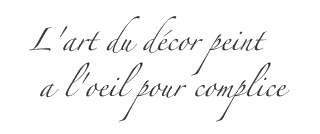 L'art du décor peint
a l'oeil pour complice